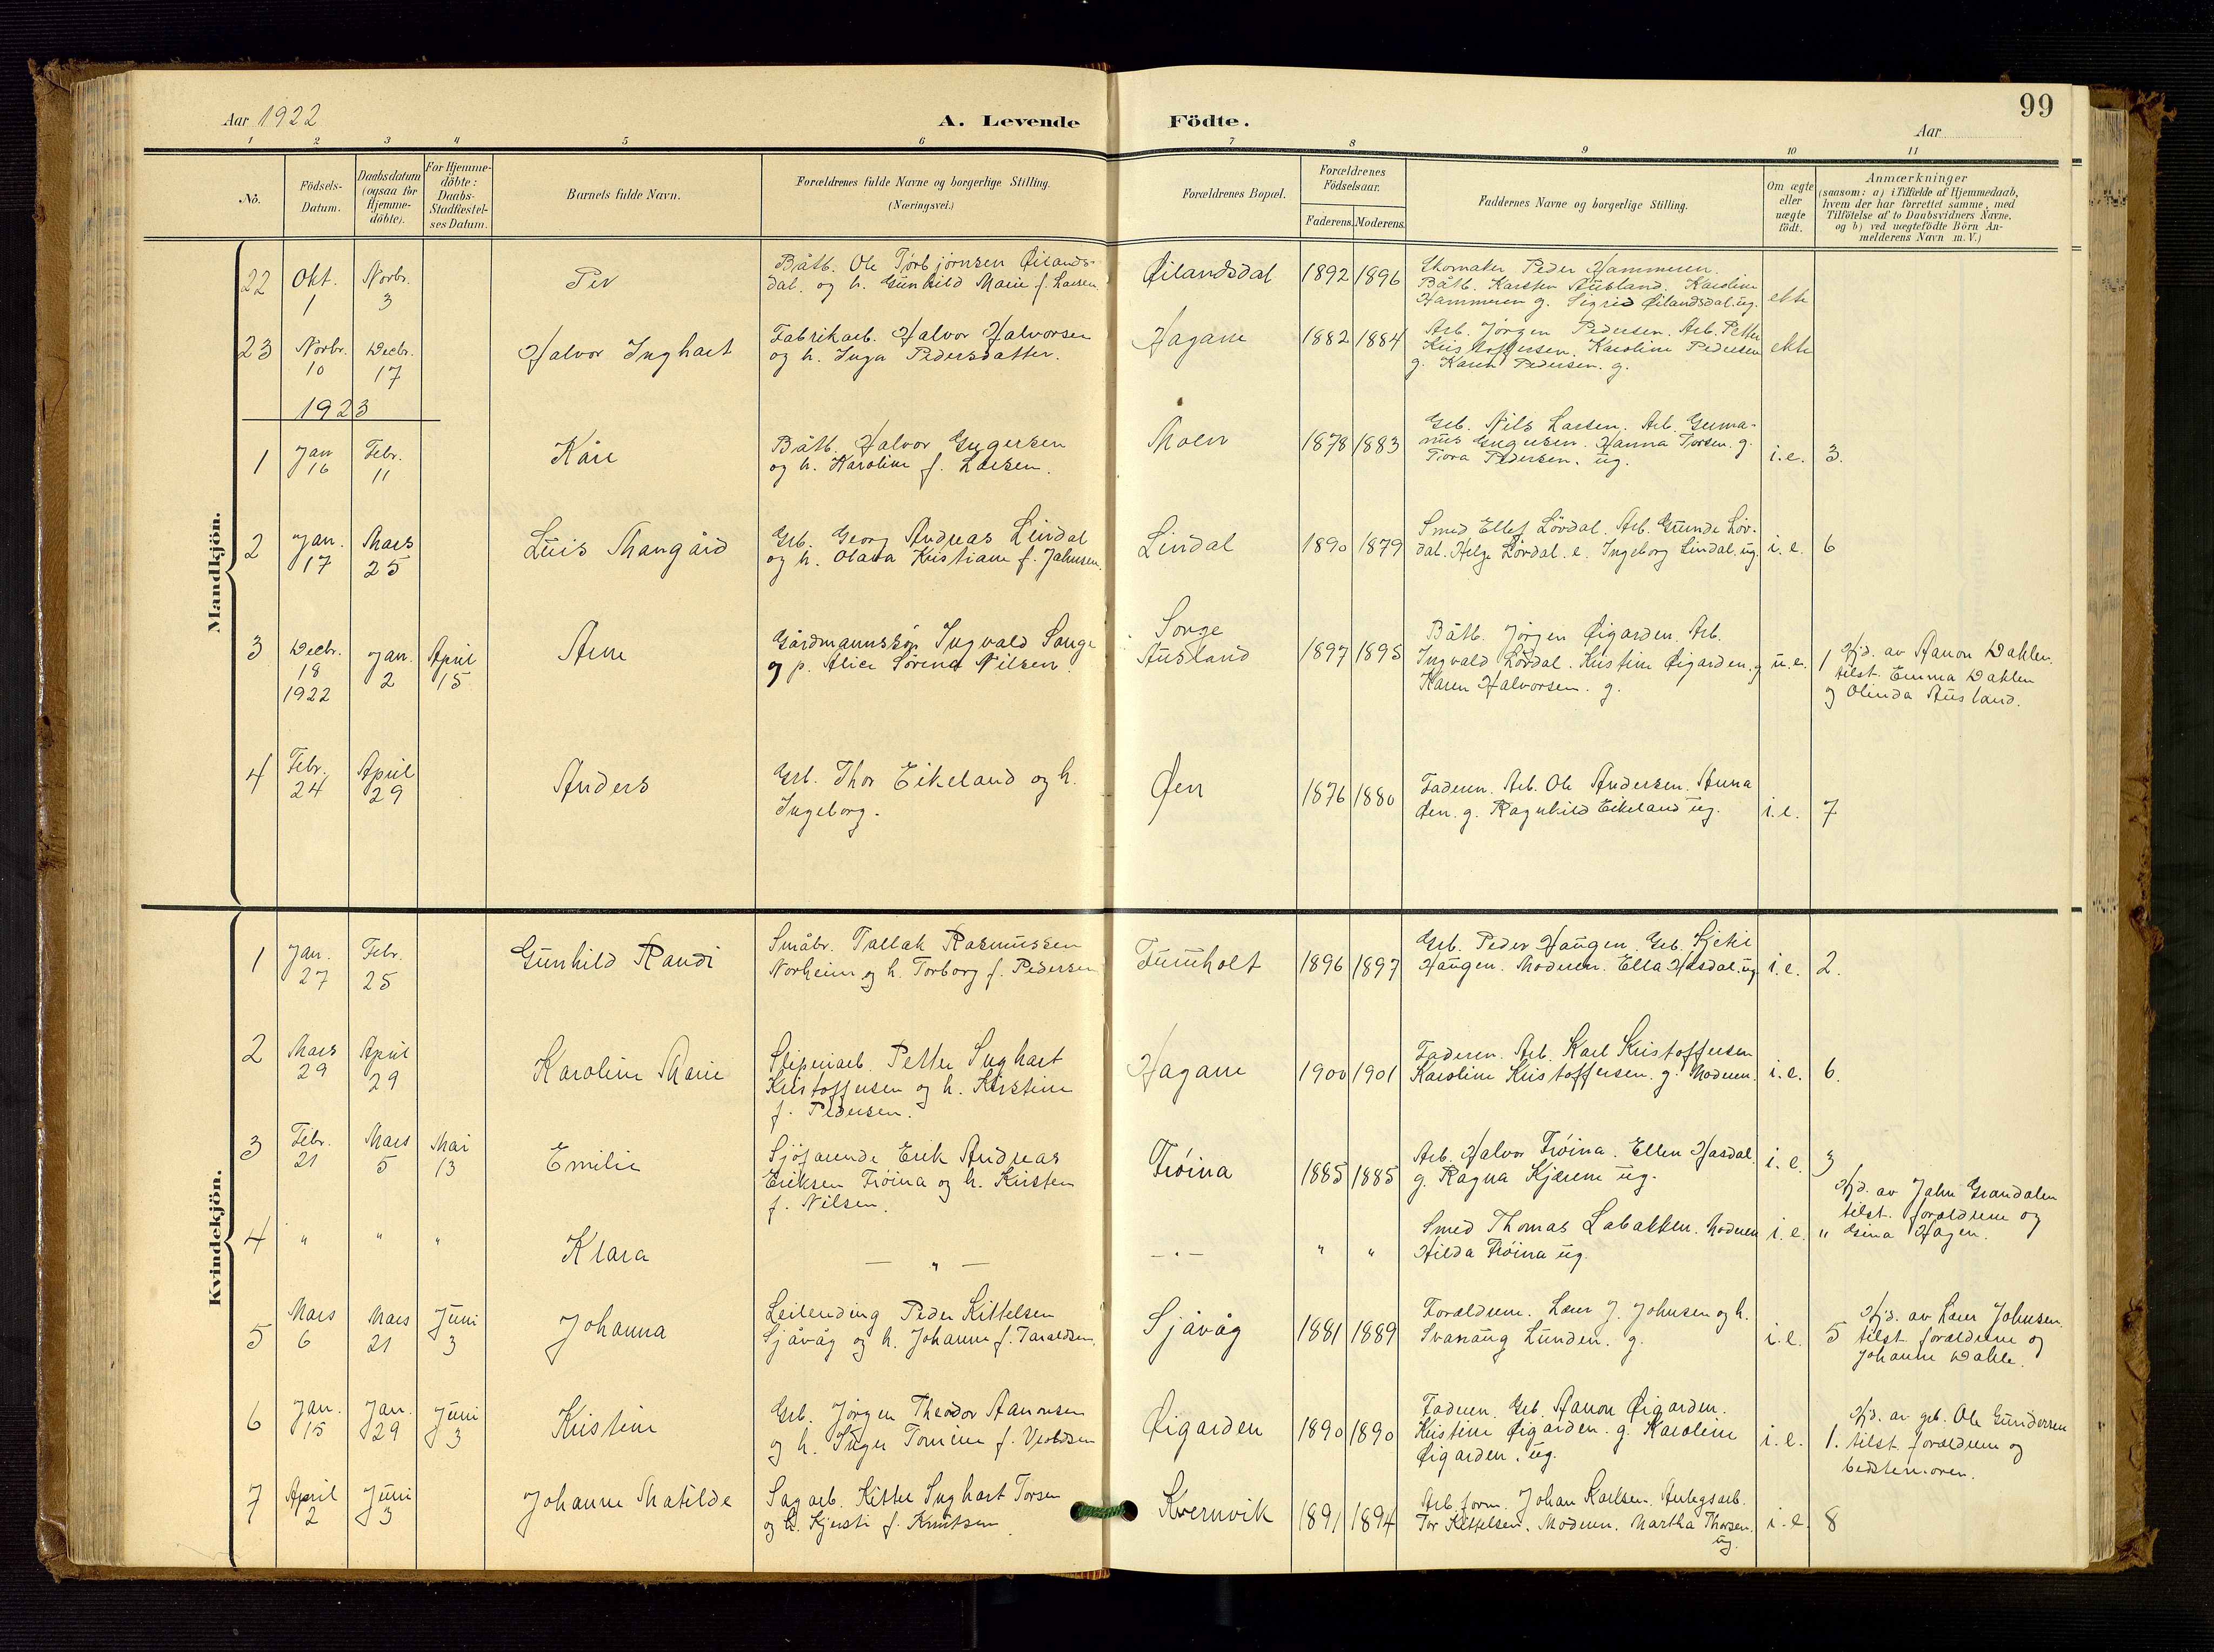 99
Aar 1922
A. Levende Födte.
Aar
1 2 3 4 5 6 7 8 9 10 11
No.
Födsels-
Datum.
Daabsdatum
(ogsaa for
Hjemme-
döbte).
For Hjemme-
döbte:
Daabs-
Stadfæstel-
ses Datum.
Barnets fulde Navn.
Forældrenes fulde Navne og borgerlige Stilling.
(Næringsvei.)
Forældrenes Bopæl.
Forældrenes
Födselsaar.
Faderens.
Moderens.
Faddernes Navne og borgerlige Stilling.
Om ægte
eller
uægte
födt.
Anmærkninger
(saasom: a) i Tilfælde af Hjemmedaab,
hvem der har forrettet samme, med
Tilföielse af to Daabsvidners Navne,
og b) ved uægtefödte Börn An-
melderens Navn m. V.)
Mandkjön.
22
Okt.
1
Novbr.
3
Per
Båtb. Ole Torbjørnsen Øilands-
dal. og h. Gunhild Marie f. Larsen
Øilandsdal
1892 1896
Skomaker Peder Hammeren.
Båtb. Karsten Ausland. Karoline
Hammeren g. Sigrid Øilandsdal. ug.
ekte
23
Novbr.
10
Decbr.
17
Halvor Inghart
Fabrikarb. Halvor Halvorsen
og h. Inga Pedersdatter.
Hagane
1882 1884
Arb. Jørgen Pedersen. Arb. Petter
Kristoffersen. Karoline Pedersen
g. Karen Pedersen. g.
ekte
1923
1
Jan
16
Febr.
11
Kåre
Båtb. Halvor Gregersen
og h. Karoline f. Larsen.
Moen
1878 1883
Grb. Nils Larsen. Arb. Germa-
nus Gregersen. Hanna Torsen. g.
Tora Pedersen. ug.
i.e.
3.
2
Jan.
17
Mars
25
Luis Mangård
Grb. Georg Andreas Lindal
og h. Olava Kristiane f. Jahnsen.
Lindal
1890 1879
Smed Ellef Lövdal. Arb. Gunde Löv-
dal. Helge Lövdal. e. Ingeborg Lindal. ug.
i.e.
6
3
Decbr.
18
1922
Jan.
2
April
15
Arne
Gårdmannssøn Ingvald Songe
og p. Alice Sørena Nilsen.
Songe
Ausland
1897 1895
Båtb. Jörgen Øigarden. Arb.
Ingvald Lövdal. Kristine Øigarden. g
Karen Halvorsen. g.
u.e.
1
Hjd. av Aanon Dahlen.
tilst. Emma Dahlen
og Olinda Ausland.
4
Febr.
24
April
29
Anders
Grb. Thor Eikeland og h.
Ingeborg.
Øen
1876 1880
Faderen. Arb. Ole Andersen. Anna
Øen. g. Ragnhild Eikeland ug.
i.e.
7
Kvindekjön.
1
Jan.
27
Febr.
25
Gunhild Randi
Småbr. Tallak Rasmussen
Norheim og h. Torborg f. Pedersen
1896 1897
Grb. Peder Haugen. Grb. Kjetil
Haugen. Moderen. Ella Hasdal. ug
i.e.
2.
2
Mars
29
April
29
Karoline Marie
Sliperiarb. Petter Inghart
Kristoffersen og h. Kirstine
f. Pedersen.
Hagane
1900 1901
Faderen. Arb. Karl Kristoffersen
Karoline Kristoffersen. g. Moderen.
i.e.
6.
3
Febr.
21
Mars
5
Mai
13
Emilie
Sjöfarende Erik Andreas
Eriksen Fröina og h. Kirsten
f. Nilsen.
Fröina
1885 1885
Arb. Halvor Fröina. Ellen Hasdal.
g. Ragna Kjærene ug.
i.e.
3
Hjd. av Jahn Grandalen
tilst. forældrene og
Osina Hagen.
4
" " "
Klara
— " —
— " —
" "
Smed Thomas Labakken. Moderen
Hilda Fröina ug.
i.e.
"
5
Mars
6
Mars
21
Juni
3
Johanna
Leilending Peder Kittelsen
Sjåvåg og h. Johanne f. Taraldsen.
Sjåvåg
1881 1889
Forældrene. Lærer J. Johnsen og h.
Svanaug Lunden. g.
i.e.
5
Hjd. av Lærer Johnsen.
tilst. forældrene og
Johanne Dahle.
6
Jan.
15
Jan.
29
Juni
3
Kristine
Grb. Jörgen Theodor Aanonsen
og h. Inger Tomine f.
Øigarden
1890 1890
Faderen. Grb. Aanon Øigarden.
Kristine Øigarden. g. Karoline
Øigarden. ug.
i.e.
1.
Hjd. av grb. Ole Gundersen
tilst. forældrene og
bedstemoren.
7
April
2
Juni
3
Johanne Matilde
Sagarb. Kittel Inghart Torsen
og h. Kjersti f. Knutsen.
Kvernvik
1891 1894
Arb.form. Johan Karlsen. Anlegsarb.
Tor Kittelsen. Moderen. Martha Thorsen.
ug.
i.e.
8